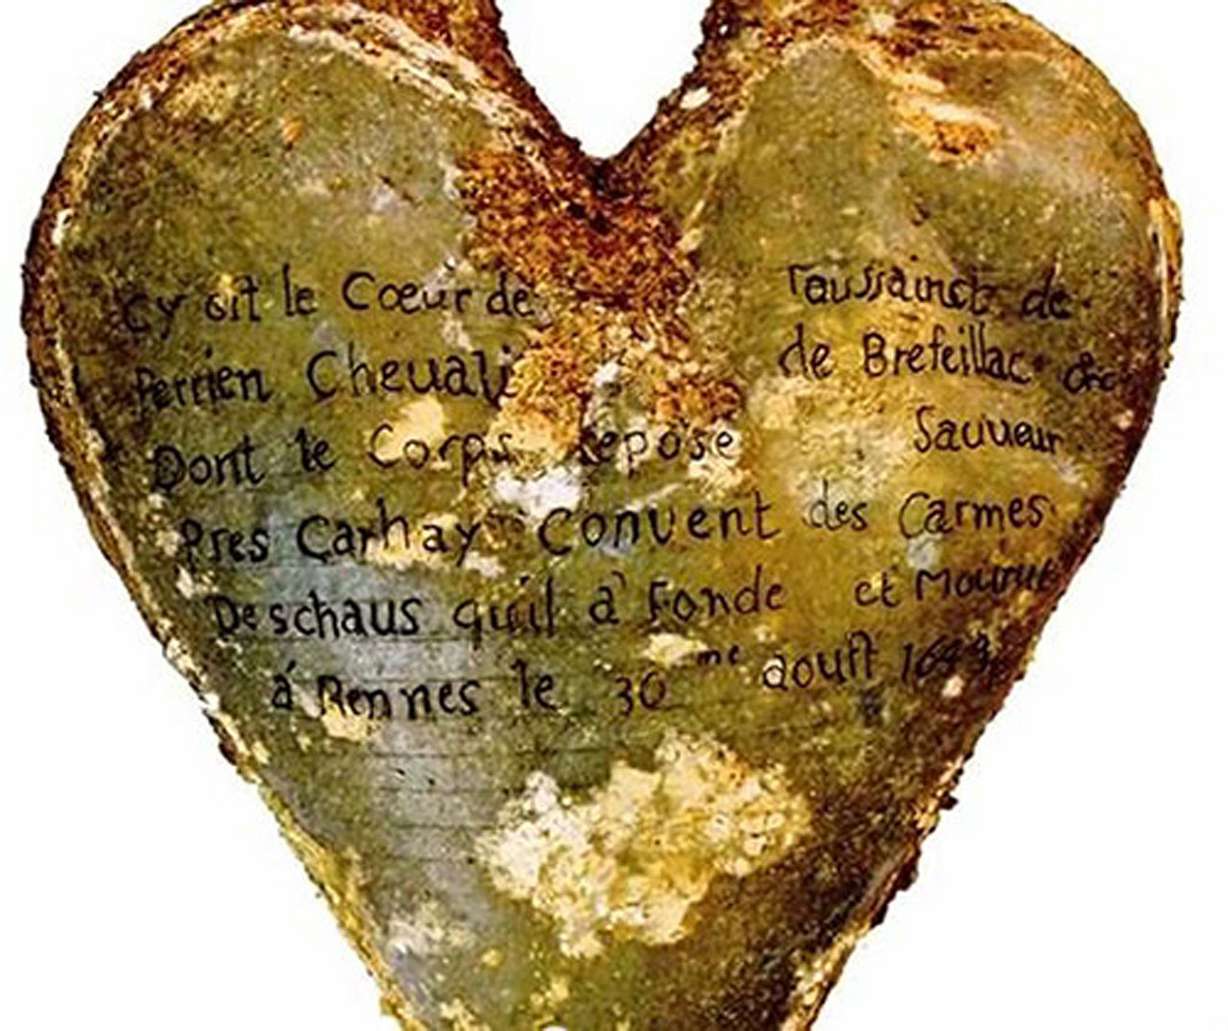 Cy git le Cœur de Toussainct de
Perrien Cheuali de Brefeillac &c
Dont le Corps repose Sauueur
Pres Carhay Conuent des Carmes
Deschaus quil à Fonde et Mourut
á Rennes le 30me aoust 1649